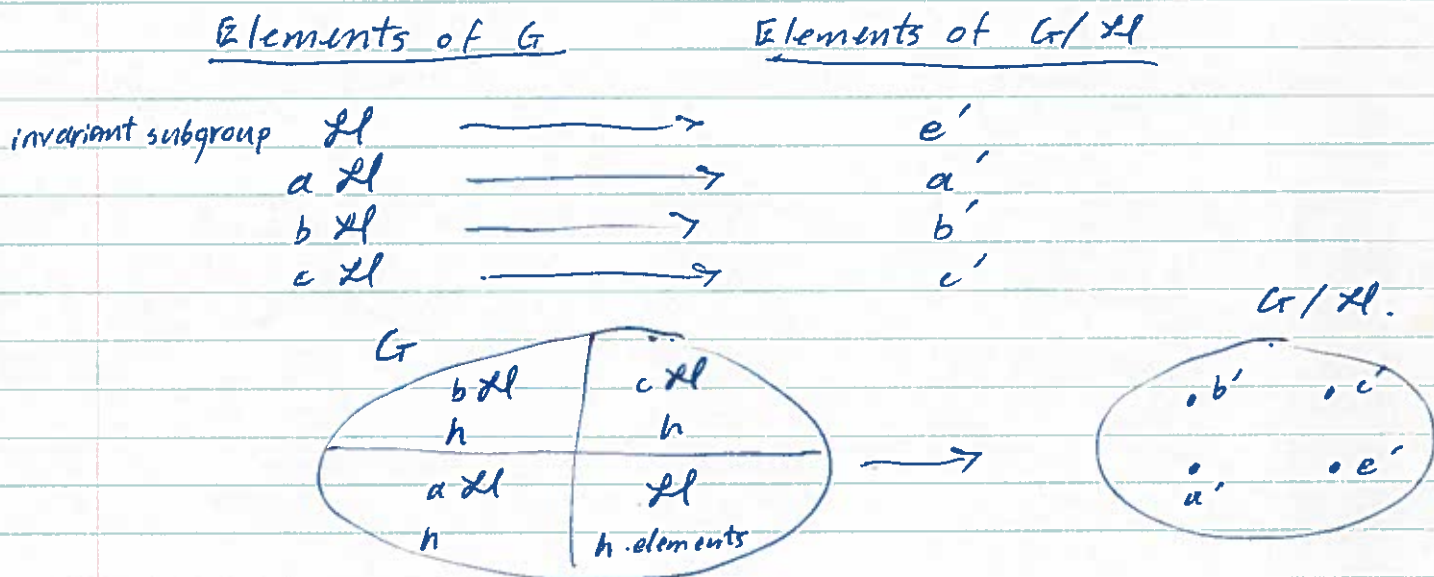 Elements of G Elements of G/ℋ
invariant subgroup ℋ → e′
aℋ → a′
bℋ → b′
cℋ → c′
G/ℋ.
G
bℋ cℋ
h h
aℋ ℋ
h h.elements
→
b′ c′
a′ e′